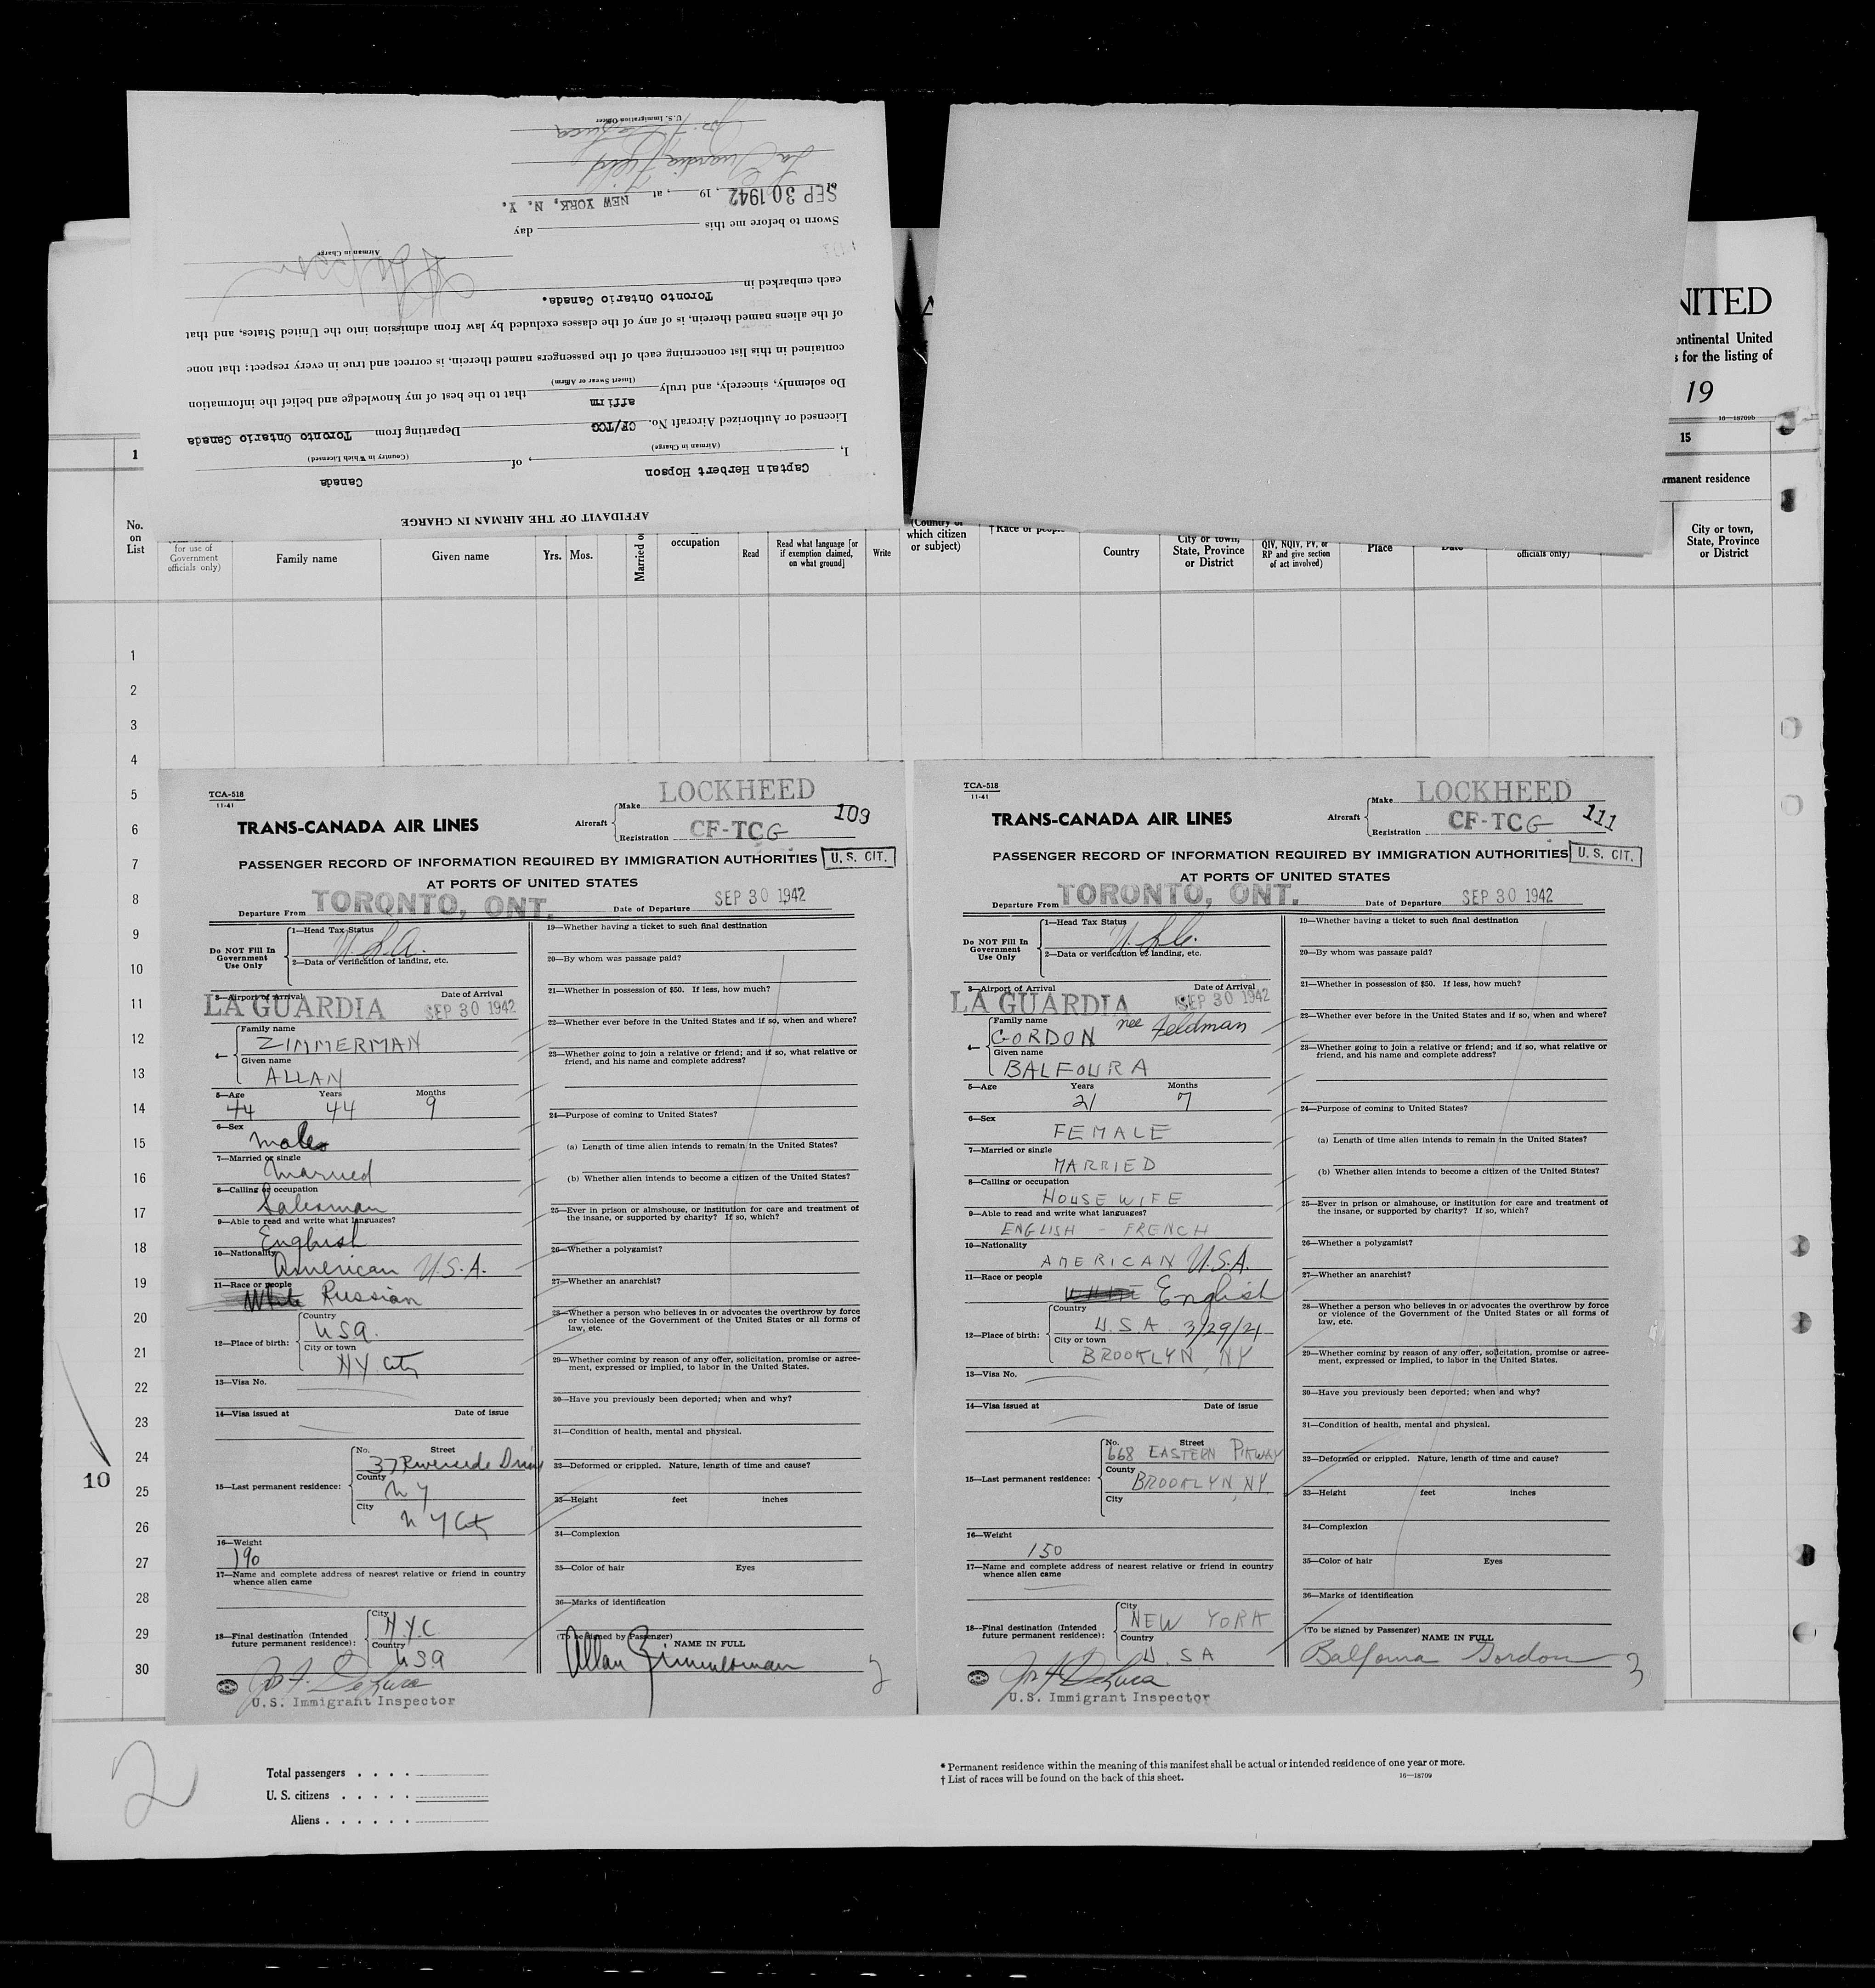 AFFIDAVIT OF THE AIRMAN IN CHARGE
Captain Herbert Hopson
Canada
I, , of
(Airman in Charge)
(Country in Which Licensed)
Licensed or Authorized Aircraft No. CF/TCG Departing from Toronto Ontario Canada
Do solemnly, sincerely, and truly affirm that to the best of my knowledge and belief the information
(Insert Swear or Affirm)
contained in this list concerning each of the passengers named therein, is correct and true in every respect; that none
of the aliens named therein, is of any of the classes excluded by law from admission into the United States, and that
each embarked in Toronto Ontario Canada.
Airman in Charge
Sworn to before me this day
of SEP 30 1942, 19 , at NEW YORK, N. Y.
La Guardia Field
U.S. Immigration Officer
NITED
ontinental United
s for the listing of
19
16—18709b
1
15
rmanent residence
No.
on
List
for use of
Government
officials only)
Family name
Given name
Yrs.
Mos.
Married o
occupation
Read
Read what language [or
if exemption claimed,
on what ground]
Write
(Country of
which citizen
or subject)
†Race or people
Country
City or town,
State, Province
or District
QIV, NQIV, PV, or
RP and give section
of act involved)
Place
Date
officials only)
City or town,
State, Province
or District
1
2
3
4
5
6
7
8
9
10
11
12
13
14
15
16
17
18
19
20
21
22
23
24
25
26
27
28
29
30
10
TCA-518
11-41
TRANS-CANADA AIR LINES
Aircraft
Make LOCKHEED
Registration CF-TCG
109
PASSENGER RECORD OF INFORMATION REQUIRED BY IMMIGRATION AUTHORITIES
U. S. CIT.
AT PORTS OF UNITED STATES
Departure From TORONTO, ONT. Date of Departure SEP 30 1942
Do NOT Fill In
Government
Use Only
1—Head Tax Status
2—Data or verification of landing, etc.
3—Airport of Arrival Date of Arrival
LA GUARDIA SEP 30 1942
4—
Family name
ZIMMERMAN
Given name
ALLAN
5—Age Years Months
44 44 9
6—Sex
male
7—Married or single
Married
8—Calling or occupation
Salesman
9—Able to read and write what languages?
English
10—Nationality
American U.S.A.
11—Race or people
White Russian
12—Place of birth:
Country
USA.
City or town
NY. City
13—Visa No.
14—Visa issued at Date of issue
15—Last permanent residence:
No. Street
37 Riverside Drive
County
NY
City
NY City
16—Weight
190
17—Name and complete address of nearest relative or friend in country
whence alien came
18—Final destination (Intended
future permanent residence):
City
N.Y.C
Country
USA
U.S. Immigrant Inspector
19—Whether having a ticket to such final destination
20—By whom was passage paid?
21—Whether in possession of $50. If less, how much?
22—Whether ever before in the United States and if so, when and where?
23—Whether going to join a relative or friend; and if so, what relative or
friend, and his name and complete address?
24—Purpose of coming to United States?
(a) Length of time alien intends to remain in the United States?
(b) Whether alien intends to become a citizen of the United States?
25—Ever in prison or almshouse, or institution for care and treatment of
the insane, or supported by charity? If so, which?
26—Whether a polygamist?
27—Whether an anarchist?
28—Whether a person who believes in or advocates the overthrow by force
or violence of the Government of the United States or all forms of
law, etc.
29—Whether coming by reason of any offer, solicitation, promise or agree-
ment, expressed or implied, to labor in the United States.
30—Have you previously been deported; when and why?
31—Condition of health, mental and physical.
32—Deformed or crippled. Nature, length of time and cause?
33—Height feet inches
34—Complexion
35—Color of hair Eyes
36—Marks of identification
(To be signed by Passenger) NAME IN FULL
Allan Zimmerman
2
TCA-518
11-41
TRANS-CANADA AIR LINES
Aircraft
Make LOCKHEED
Registration CF-TCG
111
PASSENGER RECORD OF INFORMATION REQUIRED BY IMMIGRATION AUTHORITIES
U. S. CIT.
AT PORTS OF UNITED STATES
Departure From TORONTO, ONT. Date of Departure SEP 30 1942
Do NOT Fill In
Government
Use Only
1—Head Tax Status
2—Data or verification of landing, etc.
3—Airport of Arrival Date of Arrival
LA GUARDIA SEP 30 1942
4—
Family name
GORDON nee Feldman
Given name
BALFOURA
5—Age Years Months
21 7
6—Sex
FEMALE
7—Married or single
MARRIED
8—Calling or occupation
HOUSEWIFE
9—Able to read and write what languages?
ENGLISH - FRENCH
10—Nationality
AMERICAN U.S.A.
11—Race or people
English
12—Place of birth:
Country
U.S.A. 3/29/21
City or town
BROOKLYN, NY
13—Visa No.
14—Visa issued at Date of issue
15—Last permanent residence:
No. Street
668 EASTERN PKWAY
County
BROOKLYN, NY.
City
16—Weight
150
17—Name and complete address of nearest relative or friend in country
whence alien came
18—Final destination (Intended
future permanent residence):
City
NEW YORK
Country
U.SA
U.S. Immigrant Inspector
19—Whether having a ticket to such final destination
20—By whom was passage paid?
21—Whether in possession of $50. If less, how much?
22—Whether ever before in the United States and if so, when and where?
23—Whether going to join a relative or friend; and if so, what relative or
friend, and his name and complete address?
24—Purpose of coming to United States?
(a) Length of time alien intends to remain in the United States?
(b) Whether alien intends to become a citizen of the United States?
25—Ever in prison or almshouse, or institution for care and treatment of
the insane, or supported by charity? If so, which?
26—Whether a polygamist?
27—Whether an anarchist?
28—Whether a person who believes in or advocates the overthrow by force
or violence of the Government of the United States or all forms of
law, etc.
29—Whether coming by reason of any offer, solicitation, promise or agree-
ment, expressed or implied, to labor in the United States.
30—Have you previously been deported; when and why?
31—Condition of health, mental and physical.
32—Deformed or crippled. Nature, length of time and cause?
33—Height feet inches
34—Complexion
35—Color of hair Eyes
36—Marks of identification
(To be signed by Passenger) NAME IN FULL
Balfoura Gordon
3
2
Total passengers . . . .
U. S. citizens . . . . .
Aliens . . . . . .
* Permanent residence within the meaning of this manifest shall be actual or intended residence of one year or more.
† List of races will be found on the back of this sheet.
16—18709